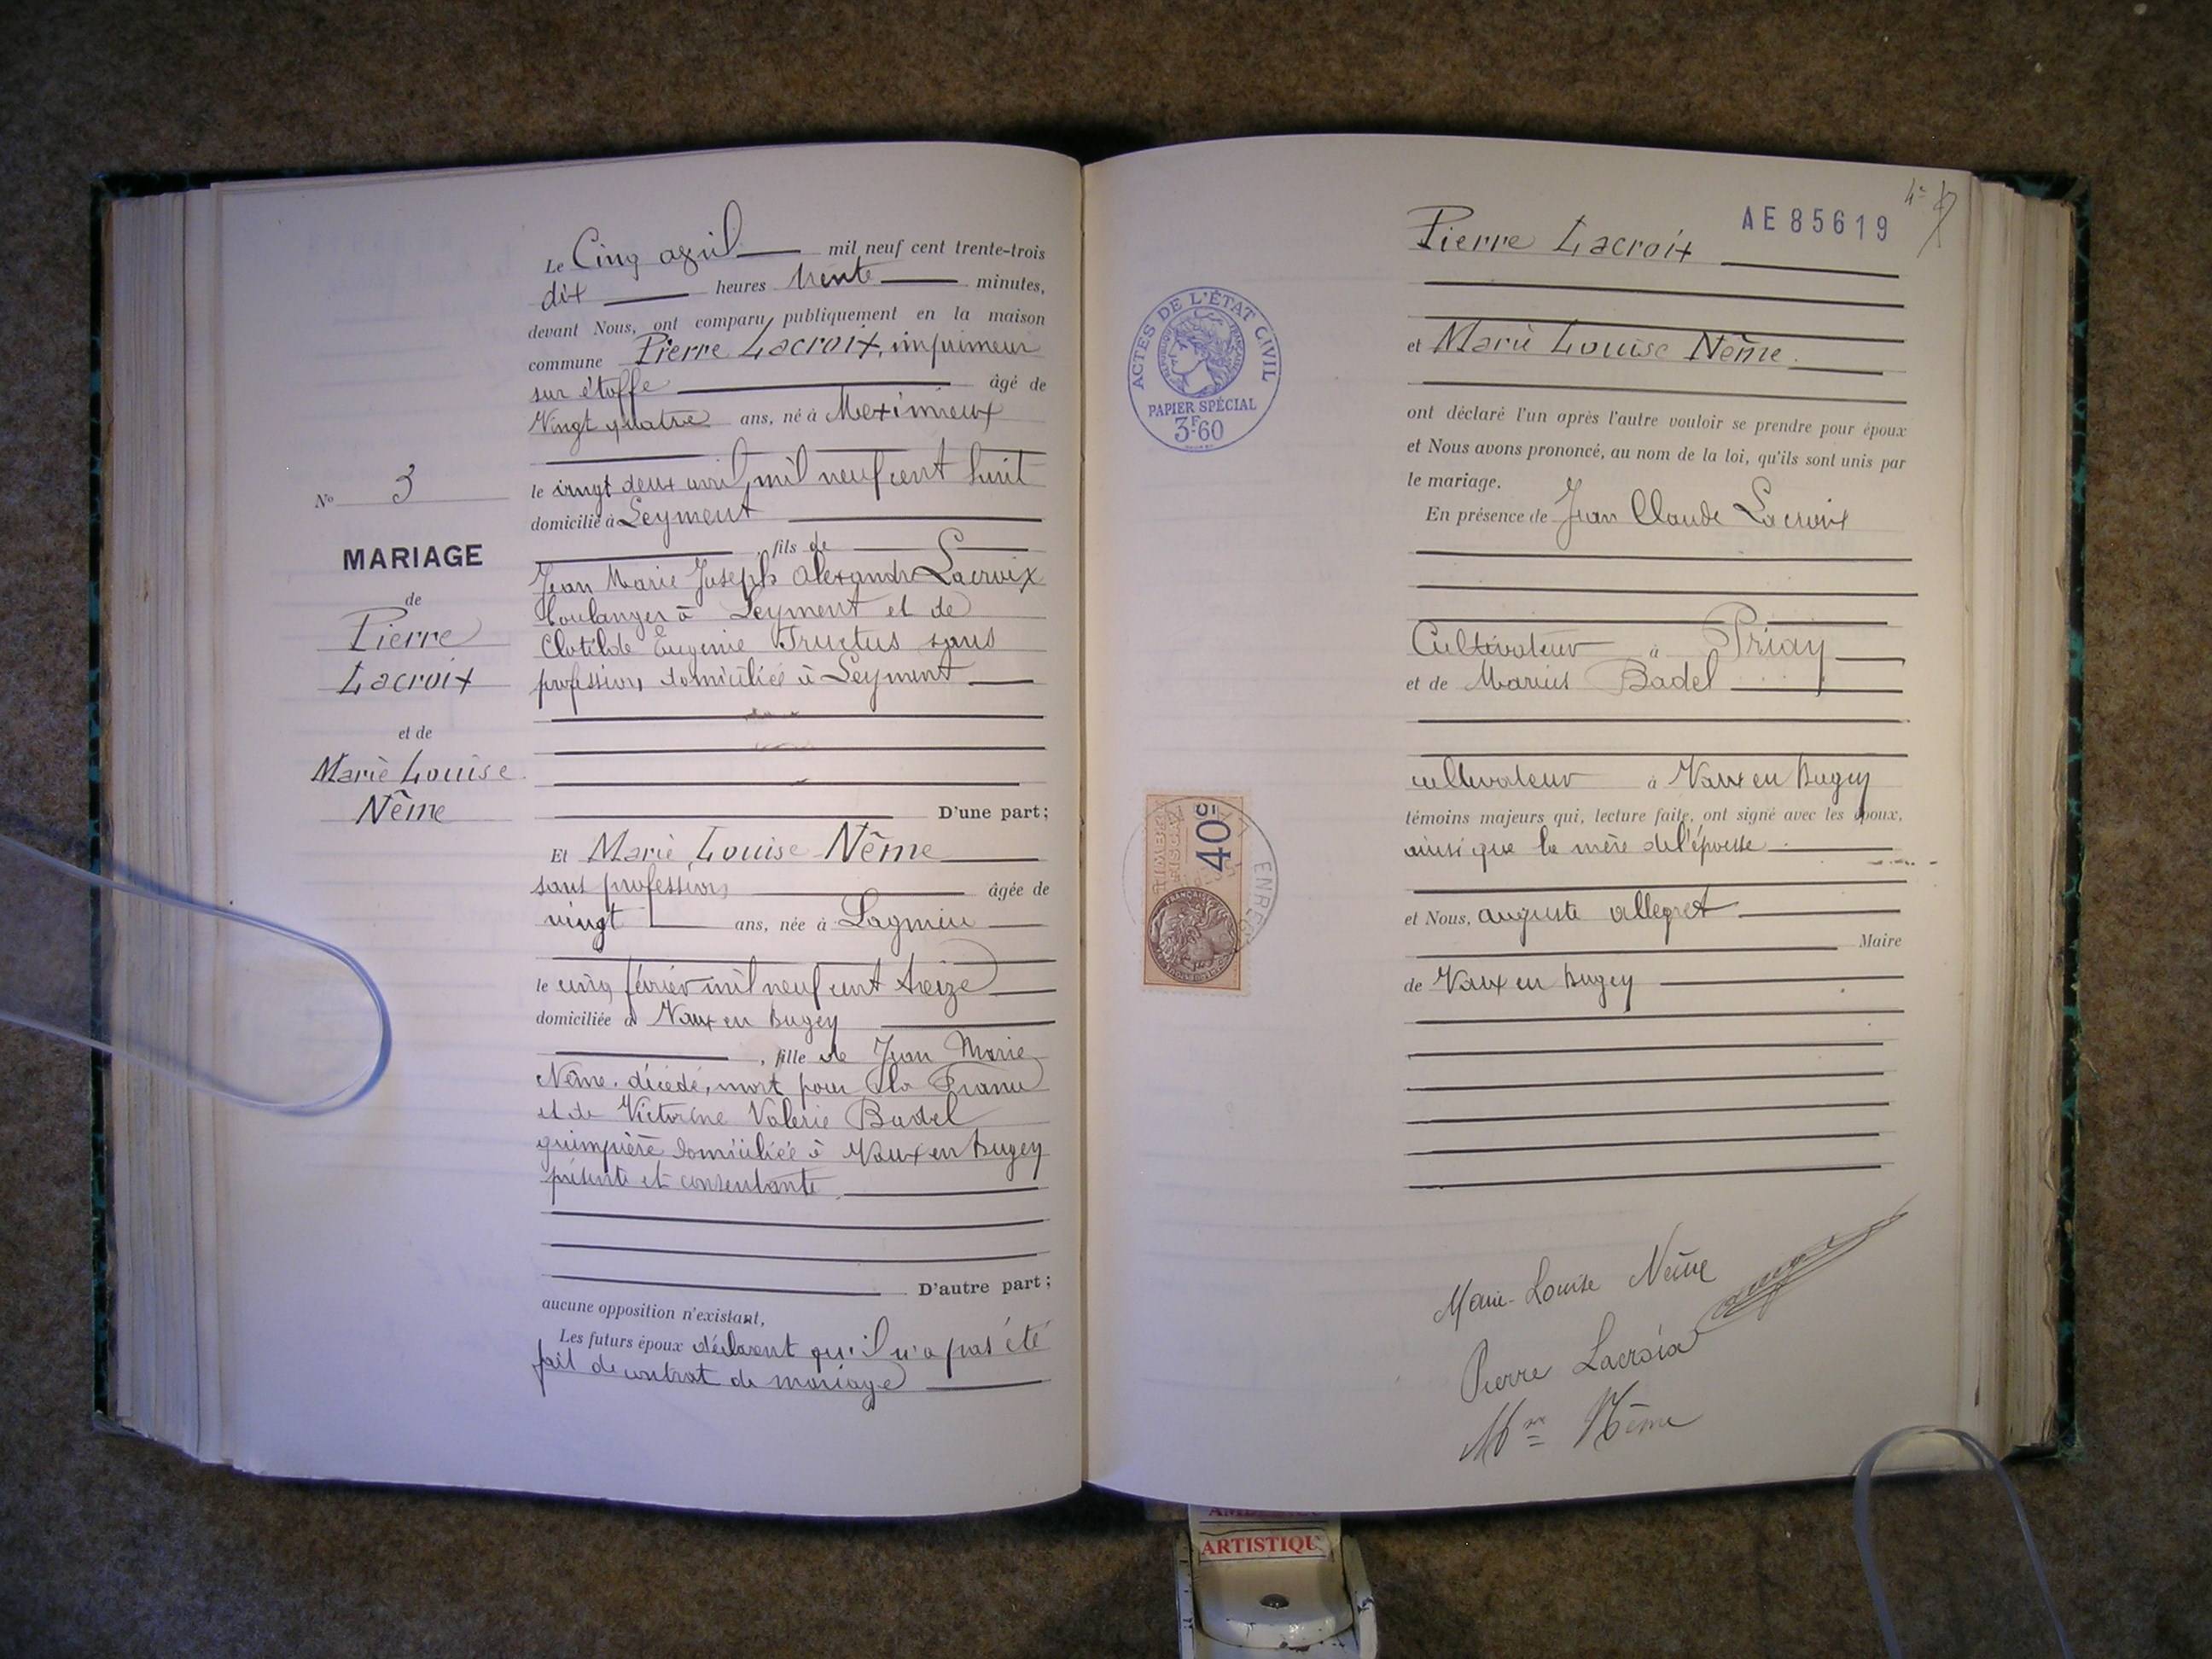 Le Cinq avril mil neuf cent trente-trois
dix heures trente minutes,
devant Nous, ont comparu publiquement en la maison
commune Pierre Lacroix, imprimeur
sur étoffe âgé de
Vingt quatre ans, né à Meximieux
le vingt deux avril, mil neuf cent huit
domicilié à Leyment
, fils de
Jean Marie Joseph Alexandre Lacroix
boulanger à Leyment et de
Clotilde Eugenie Tructus sans
profession, domiciliés à Leyment
D'une part;
No 3
MARIAGE
de
Pierre
Lacroix
et de
Marie Louise
Nême
Et Marie Louise Nême
sans profession, âgée de
vingt ans, née à Lagnieu
le cinq février mil neuf cent treize
domiciliée à Vaux en Bugey
, fille de Jean Marie
Nême, décédé, mort pour la France
et de Victorine Valerie Badel
guimpière domiciliée à Vaux en Bugey
présente et consentante
D'autre part;
aucune opposition n'existant,
Les futurs époux déclarent qu'il n'a pas été
fait de contrat de mariage
AE85619
Pierre Lacroix
et Marie Louise Nême.
ont déclaré l'un après l'autre vouloir se prendre pour époux
et Nous avons prononcé, au nom de la loi, qu'ils sont unis par
le mariage.
En présence de Jean Claude Lacroix
Cultivateur à Priay
et de Marius Badel
cultivateur à Vaux en Bugey
témoins majeurs qui, lecture faite, ont signé avec les époux,
ainsi que la mère de l'épouse
et Nous, Auguste Allegret
Maire
de Vaux en Bugey
Marie-Louise Nême
Pierre Lacroix
Mme Nême
ACTES DE L'ÉTAT CIVIL
PAPIER SPÉCIAL
3F60
TIMBRE
FISCAL
40c
ENRE
ARTISTIQU